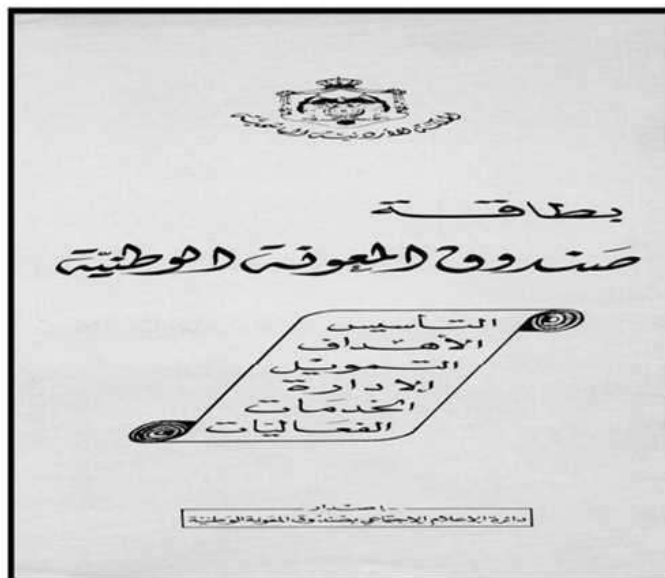 المملكة الأردنية الهاشمية
بطاقة
صندوق المعونة الوطنية
التأسيس
الأهداف
التمويل
الادارة
الخدمات
الفعاليات
إصدار
دائرة الاعلام الاجتماعي بصندوق المعونة الوطنية